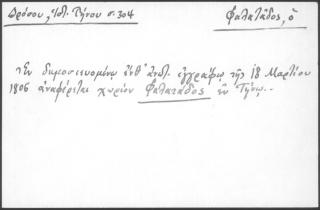 Δρόσου, Ἱστ. Τήνου σ. 304
Φαλατᾶδος, ὁ
Ἐν δημοσιευομένῳ ἐνθ' ἀνωτ. ἐγγράφῳ τῆς 18 Μαρτίου
1806 ἀναφέρεται χωρίον Φαλατάδος ἐν Τήνῳ.